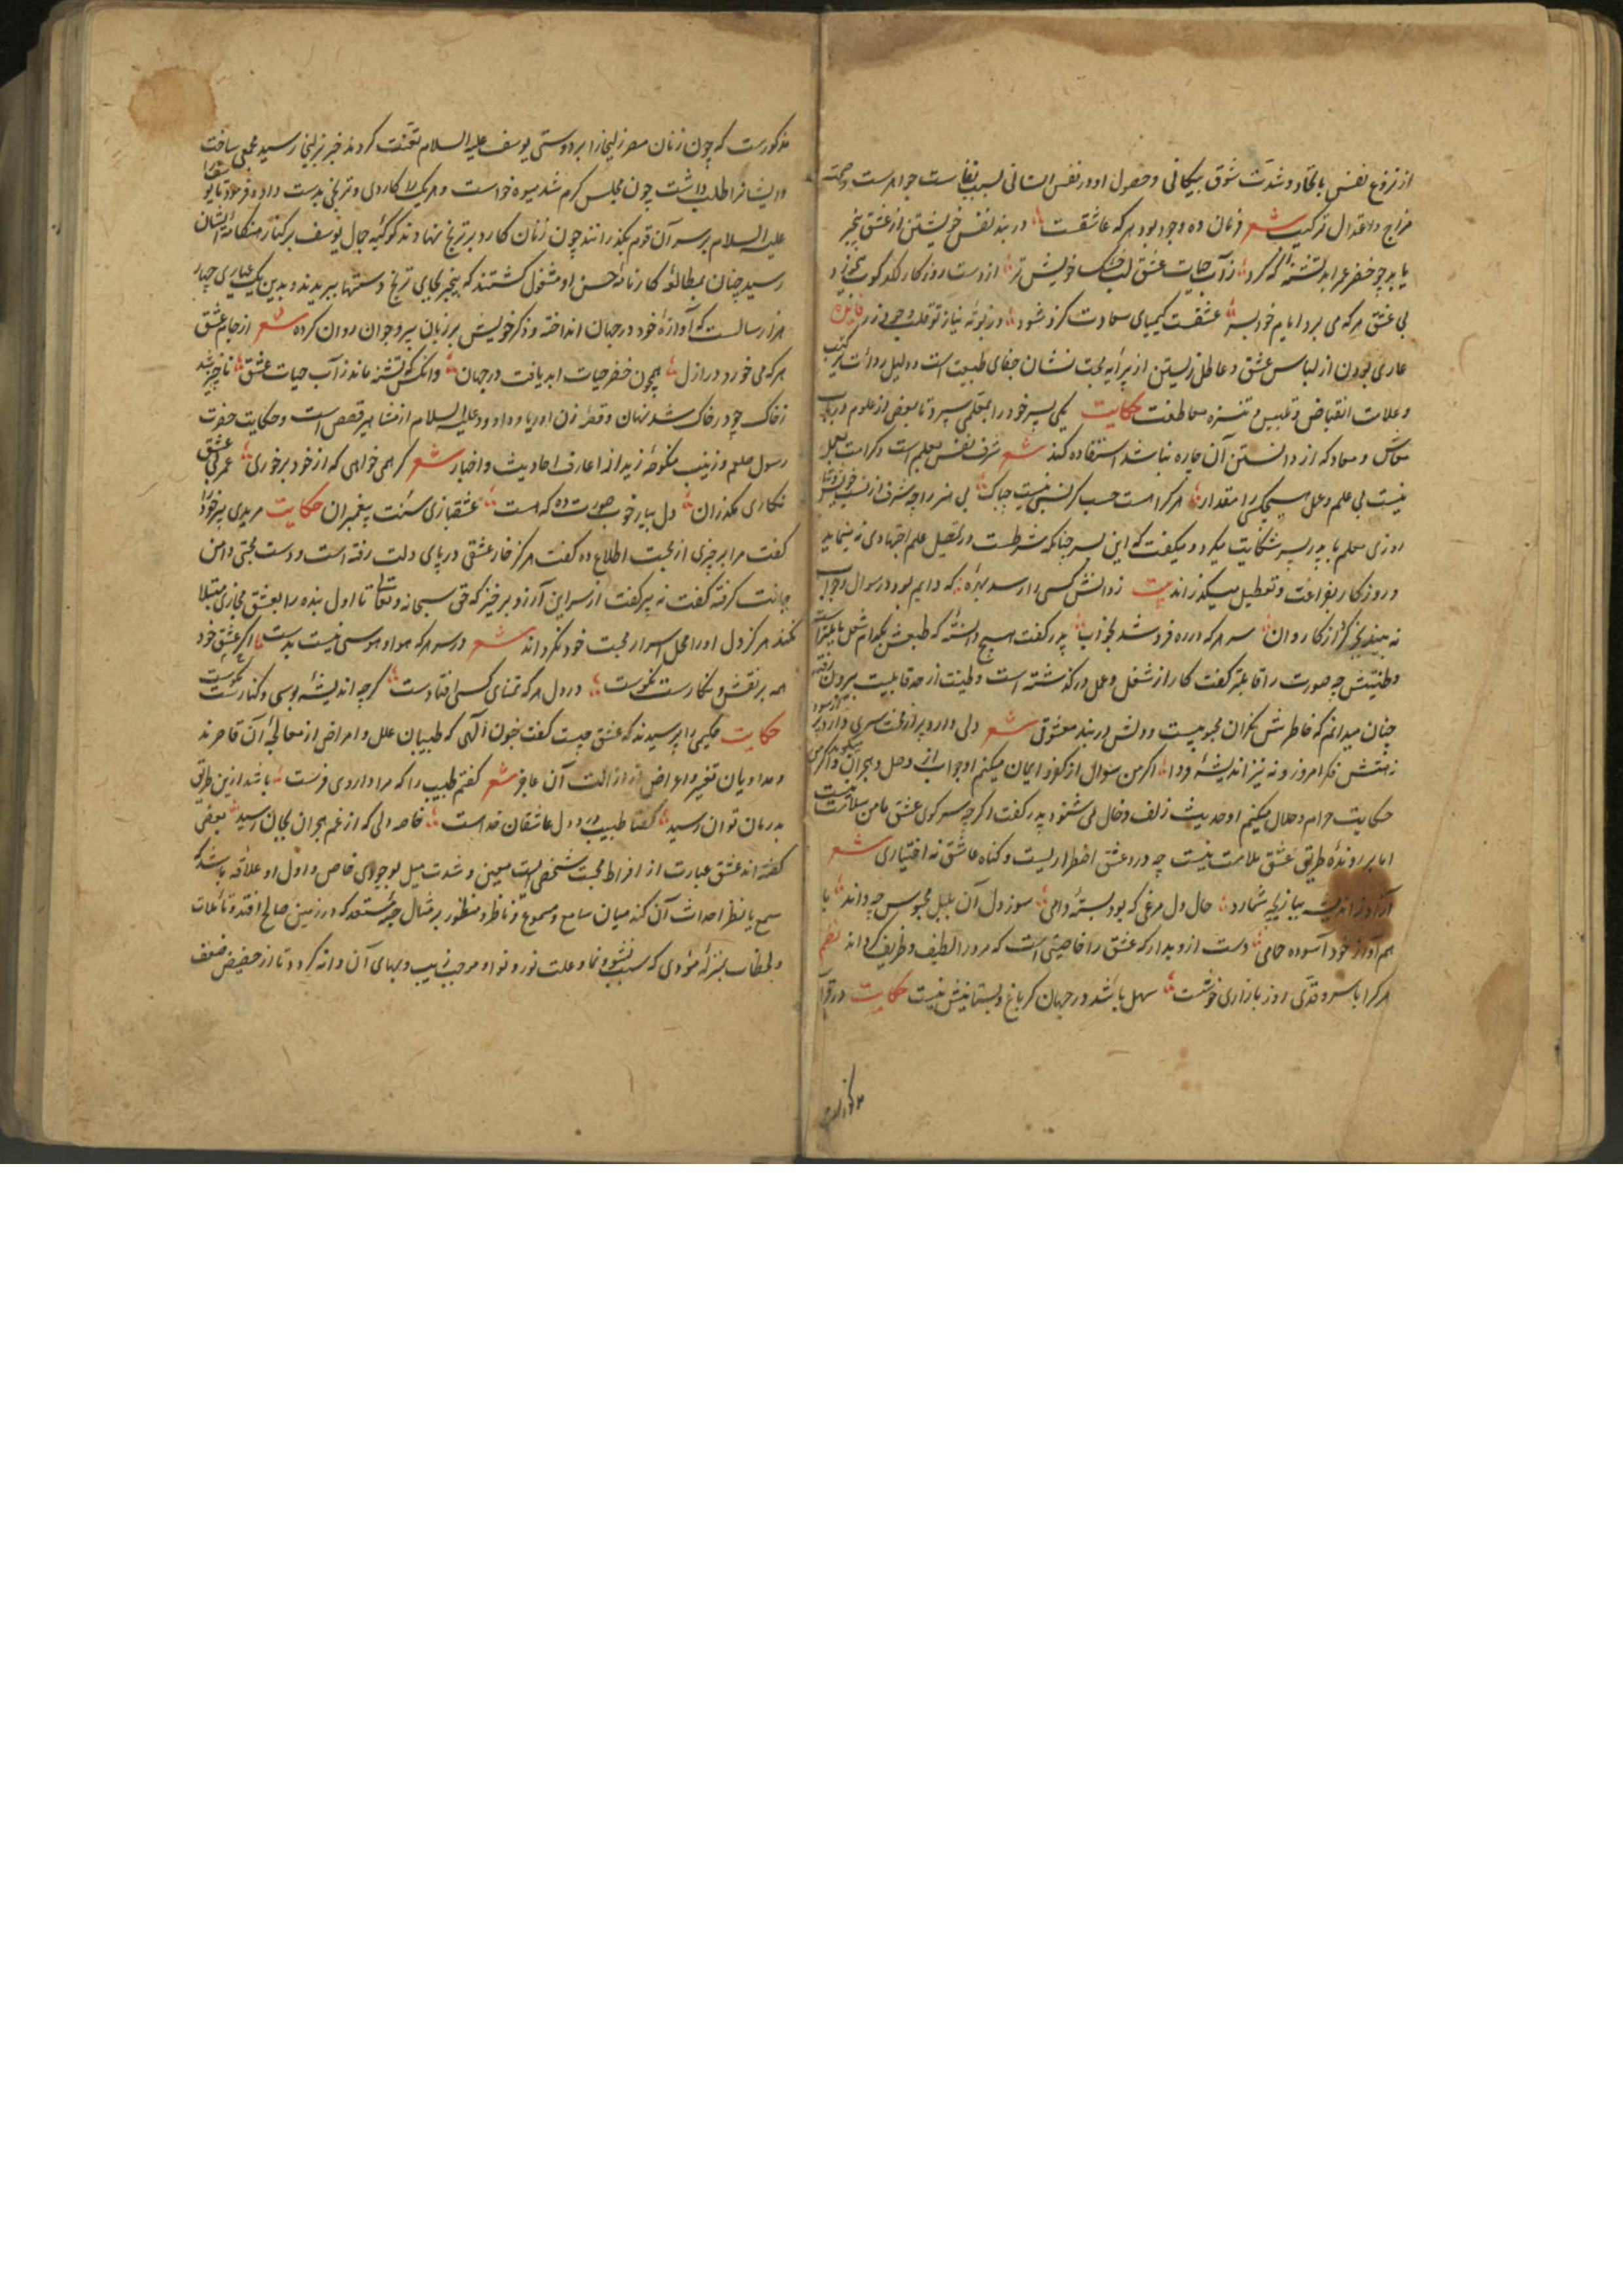 از نزوع نفس باتحاد و شدت شوق بیکانی و حصول او در نفس انسانی بسبب نفاست جواهرست و صحت
مزاج و اعتدال ترکیب شعر فرمان ده وجود بود هر که عاشقست در بند نفس خویشتن از عشق بیخبر
یابد چو خضر عمر ابد تشنه که کرد ز آب حیات عشق لب خشک خویش تر از دست روزکار
بی عشق هر که می برد ایام خود بسر عشقت کیمیای سعادت کزو شود در بوته نیاز تو قلب وجود زر
عاری بودن از لباس عشق و عاطل زیستن از پیرایه محبت نشان جفای طبیعت است و دلیل
و علامت انقباض حکایت یکی پسر خود را بمعلمی سپرد تا بعضی از علوم در باب
معاش و معاد که از دانستن آن چاره نباشد استفاده کند شعر شرف نفس بعلم است و کرامت بعمل
نیست بی علم و عمل هیچکس را مقدار هر کرا هست حسب کر نسبی نیست چه باک بی هنر را چه شرف از نسب خویش و تبار
روزی معلم با پدر پسر شکایت میکرد و میکفت که این پسر چنانکه شرطست در تحصیل علم اجتهادی نمی نماید
و روزکار بفراغت و تعطیل میکذراند بیت ز دانش کسی را رسد بهره که دایم بود در سوال و جواب
نه بیند بجز کرد از کاروان هر که در ره فروشد بخواب پدر کفت هیچ دانسته که طبعش بکدام شغل مایلترست
و طینتش چه صورت را قابلتر کفت کار از شغل و عمل در کذشته است و طینت از حد قابلیت بیرون رفته
چنان میدانم که خاطرش نکران محبوبیست و دلش در بند معشوق شعر دلی دارد پر از سری دارد پر از سودا
ز هتش فکر امروز و نه نیز اندیشه فردا اکر من سوال از کفر و ایمان میکنم او جواب از وصل و هجران میکوید و اکر من
حکایت حرام و حلال میکنم او حدیث زلف و خال می شنود پدر کفت اکر چه سر کوی عشق مامن سلامت نیست
اما بر رونده طریق عشق ملامت نیست چه درد عشق اضطراریست و کناه عاشق نه اختیاری شعر
آزاد ز اندیشه ببازیچه شمارد حال دل مرغی که بود بسته دامی سوز دل آن بلبل محبوس چه داند با
هم آواز خود آسوده حمامی دست ازو بدار که عشق را خاصیتی است که مرد را لطیف و ظریف کرداند نظم
هر کرا با سرو قدی روز بازاری خوشست سهل باشد در جهان کر باغ و بستانیش نیست حکایت در قرآن
مذکورست
مذکورست که چون زنان مصر زلیخا را بر دوستی یوسف علیه السلام تعنت کردند خبر بزلیخا رسید مجمعی ساخت
و ایشانرا طلب داشت چون مجلس کرم شد میوه خواست و هر یک را کاردی و ترنجی بدست داد و فرمود تا یوسف را
علیه السلام بر سر آن قوم بکذرانند چون زنان کارد بر ترنج نهادند کوکبه جمال یوسف بر کنار هنکامه ایشان
رسید چنان بمطالعه کارنامه حسن او مشغول کشتند که بیخبر بجای ترنج دستها ببریدند و بدین
هزار سالست که آوازه خود در جهان انداخته و ذکر خویش بر زبان پیر و جوان روان کرده شعر از جام عشق
هر که می خورد در ازل همچون خضر حیات ابد یافت در جهان وانکس که تشنه ماند ز آب حیات عشق ناچیز شد
ز خاک چو در خاک شد نهان و قصه زن اوریا و داوود علیه السلام از مشاهیر قصص است و حکایت حضرت
رسول صلعم و زینب منکوحه زید از اعارف احادیث و اخبار شعر کر همی خواهی که از خود برخوری عمر بی عشق
نکاری مکذران دل بیار خوب صورت ده که هست عشقبازی سنت پیغمبران حکایت مریدی پیر خود را
کفت مرا بر چیزی از محبت اطلاع ده کفت هرکز خار عشقی در پای دلت رفته است و دست محبتی دامن
جانت کرفته کفت نه پیر کفت از سر این آرزو برخیز که حق سبحانه و تعالی تا اول بنده را بعشق مجازی مبتلا
نکند هرکز دل او را محل اسرار محبت خود نکرداند شعر در سر هر که هوا و هوسی نیست بدست اکر عشق خود
همه بر نقش و نکارست نکوست در دل هر که تمنای کسی افتادست کر چه اندیشه بوسی و کنارست نکوست
حکایت حکیمی را پرسیدند که عشق چیست کفت جنون الهی که طبیبان علل و امراض از معالجه آن قاصرند
و مداویان تغیر و اعراض از ازالت آن عاجز شعر کفتم طبیب را که مرا داروی فرست باشد ازین طریق
بدرمان توان رسید کفتا طبیب درد دل عاشقان خداست خاصه دلی که از غم هجران بجان رسید بعضی
کفته اند عشق عبارت از افراط محبت شخصی است معین و شدت میل بوجودی خاص و اول او علاقه باشد که
سمع یا نظر احداث آن کند میان سامع و مسموع و ناظر و منظور بر مثال حبه مستعد که در زمین صالح افتد و تاملات
و لحظات بمنزله موادی که سبب نشو و نما و علت نور و نوا و موجب زیب و بهای آن دانه کردد تا از حضیض ضعف